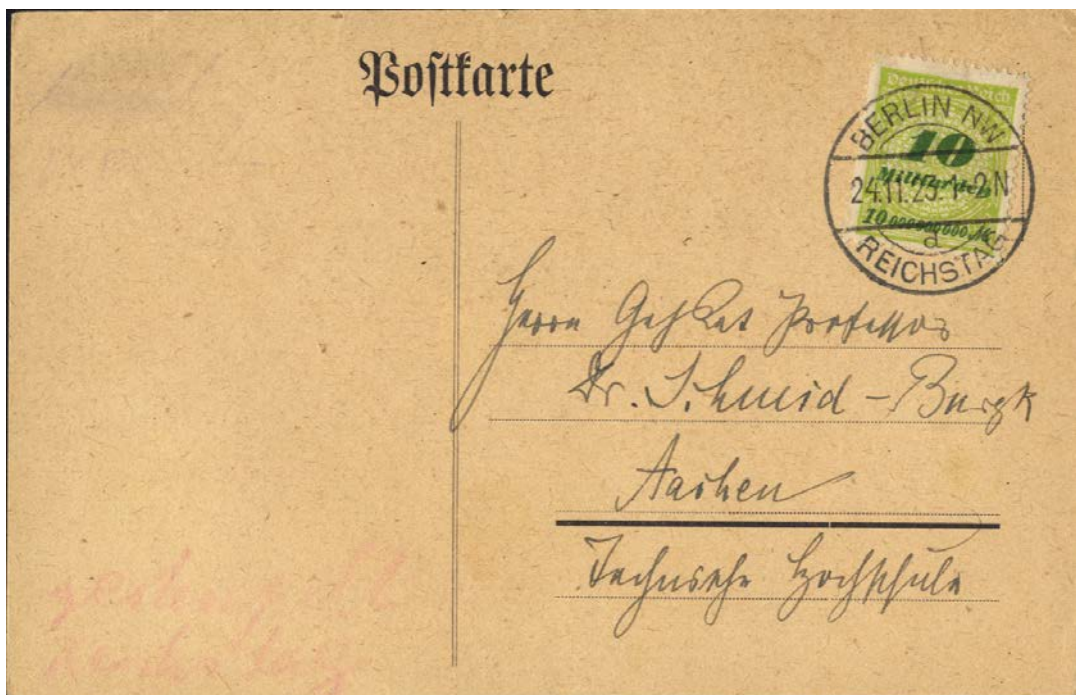 Postkarte
Deutsches Reich
10
Milliarden
10 000 000 000 M
BERLIN NW
24.11.23. 1-2 N
a
REICHSTAG
Herrn Geh Rat Professor
Dr. Schmid-Burgk
Aachen
Technische Hochschule
Reichstag